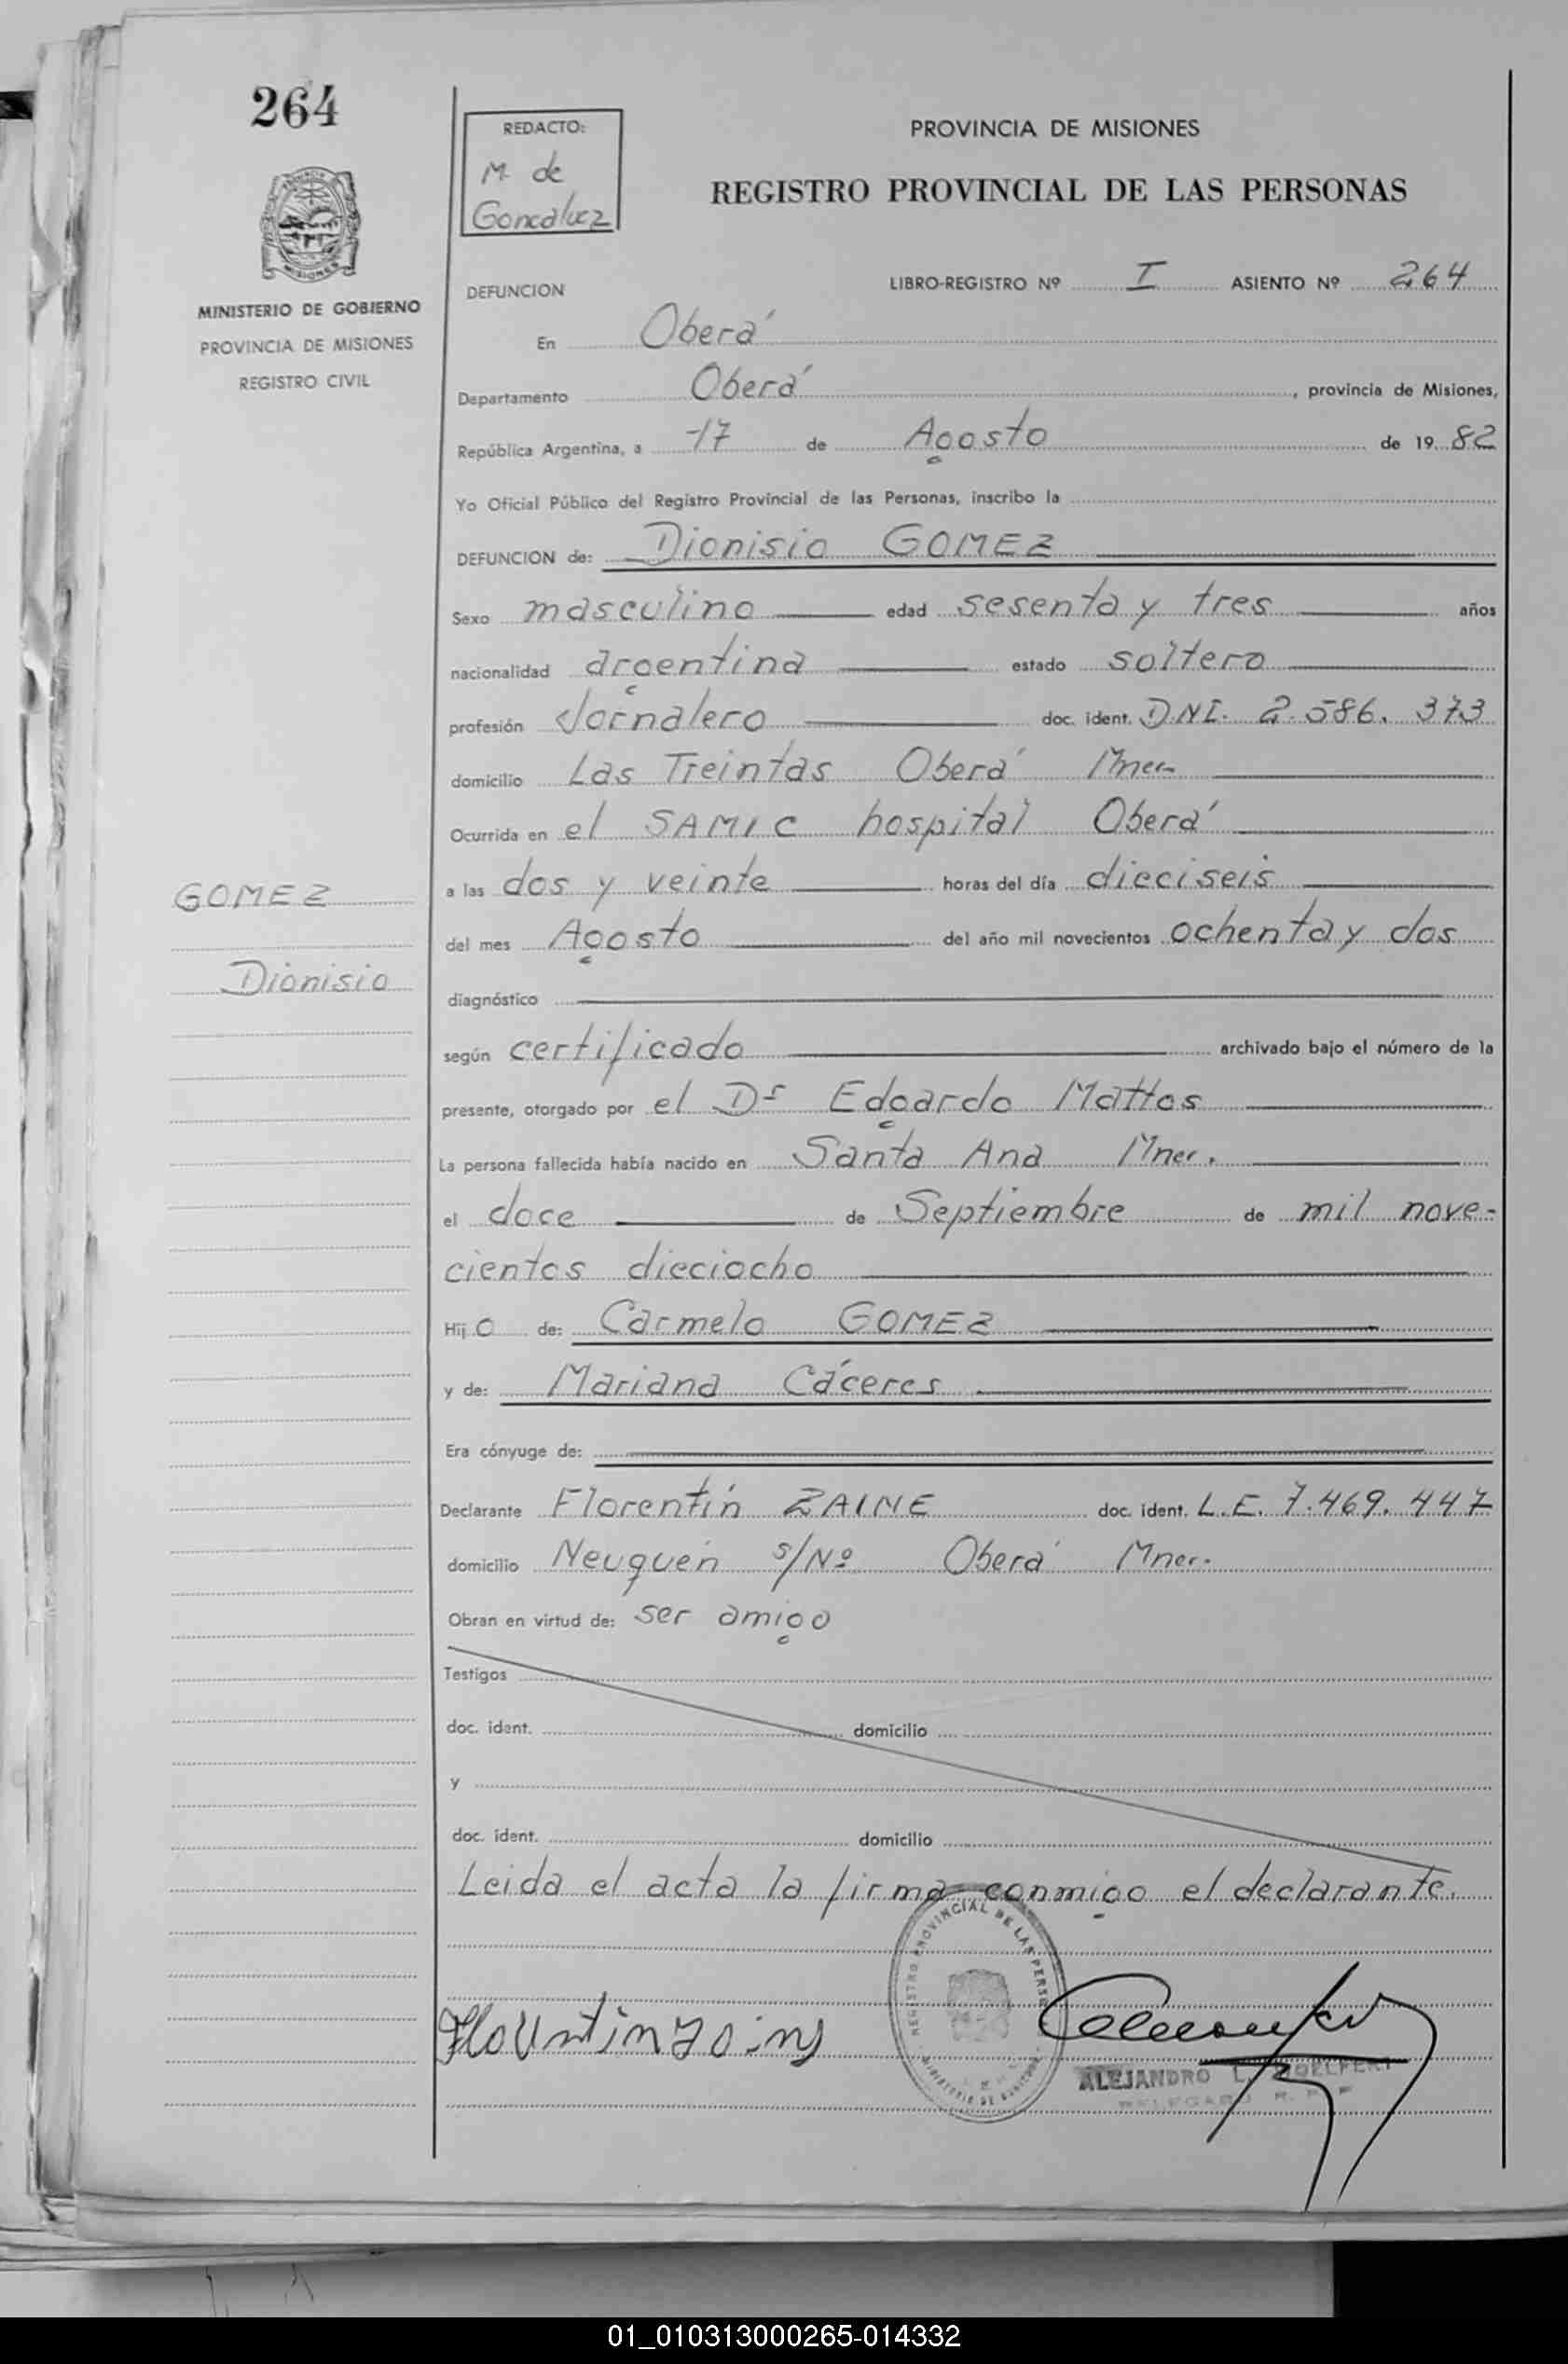 264
REDACTO:
M. de
Goncalvez
PROVINCIA DE MISIONES
REGISTRO PROVINCIAL DE LAS PERSONAS
MISIONES
MINISTERIO DE GOBIERNO
PROVINCIA DE MISIONES
REGISTRO CIVIL
DEFUNCION LIBRO-REGISTRO Nº I ASIENTO Nº 264
En Oberá
Departamento Oberá, provincia de Misiones,
República Argentina, a 17 de Agosto de 1982
Yo Oficial Público del Registro Provincial de las Personas, inscribo la
DEFUNCION de: Dionisio GOMEZ
Sexo masculino edad sesenta y tres años
nacionalidad argentina estado soltero
profesión Jornalero doc. ident. D.N.I. 2.586.373
domicilio Las Treintas Oberá Mnes
Ocurrida en el SAMIC hospital Oberá
a las dos y veinte horas del día dieciseis
del mes Agosto del año mil novecientos ochenta y dos
GOMEZ
Dionisio
diagnóstico
según certificado archivado bajo el número de la
presente, otorgado por el Dr Edgardo Mattos
La persona fallecida había nacido en Santa Ana Mnes.
el doce de Septiembre de mil nove-
cientos dieciocho
Hijo de: Carmelo GOMEZ
y de: Mariana Cáceres
Era cónyuge de:
Declarante Florentín ZAINE doc. ident. L.E. 7.469.447
domicilio Neuquén s/Nº Oberá Mnes.
Obran en virtud de: ser amigo
Testigos
doc. ident. domicilio
y
doc. ident. domicilio
Leida el acta la firma conmigo el declarante.
REGISTRO PROVINCIAL DE LAS PERSO
MINISTERIO DE
ALEJANDRO L.
DELEGADO R. P. P.
01_010313000265-014332